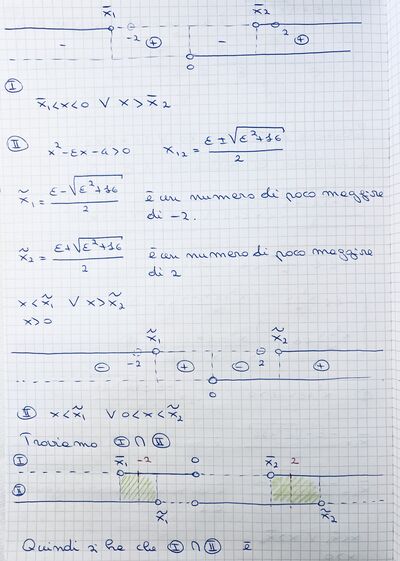 x̄₁ x̄₂
- -2 ⊕ - 2 ⊕
0
Ⓘ
x̄₁<x<0 ∨ x>x̄₂
Ⓘⓘ x²-εx-4>0 x₁₂ = (ε±√(ε²+16))/2
x̃₁ = (ε-√(ε²+16))/2 è un numero di poco maggiore
di -2.
x̃₂ = (ε+√(ε²+16))/2 è un numero di poco maggiore
di 2
x<x̃₁ ∨ x>x̃₂
x>0
x̃₁ x̃₂
⊖ -2 ⊕ ⊖ 2 ⊕
0
II x<x̃₁ ∨ 0<x<x̃₂
Troviamo I ∩ II
I x̄₁ -2 0 x̄₂ 2
II x̃₁ x̃₂
Quindi si ha che I ∩ II è